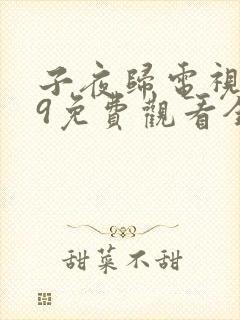 子夜歸電視
9免費觀看全
甜菜不甜